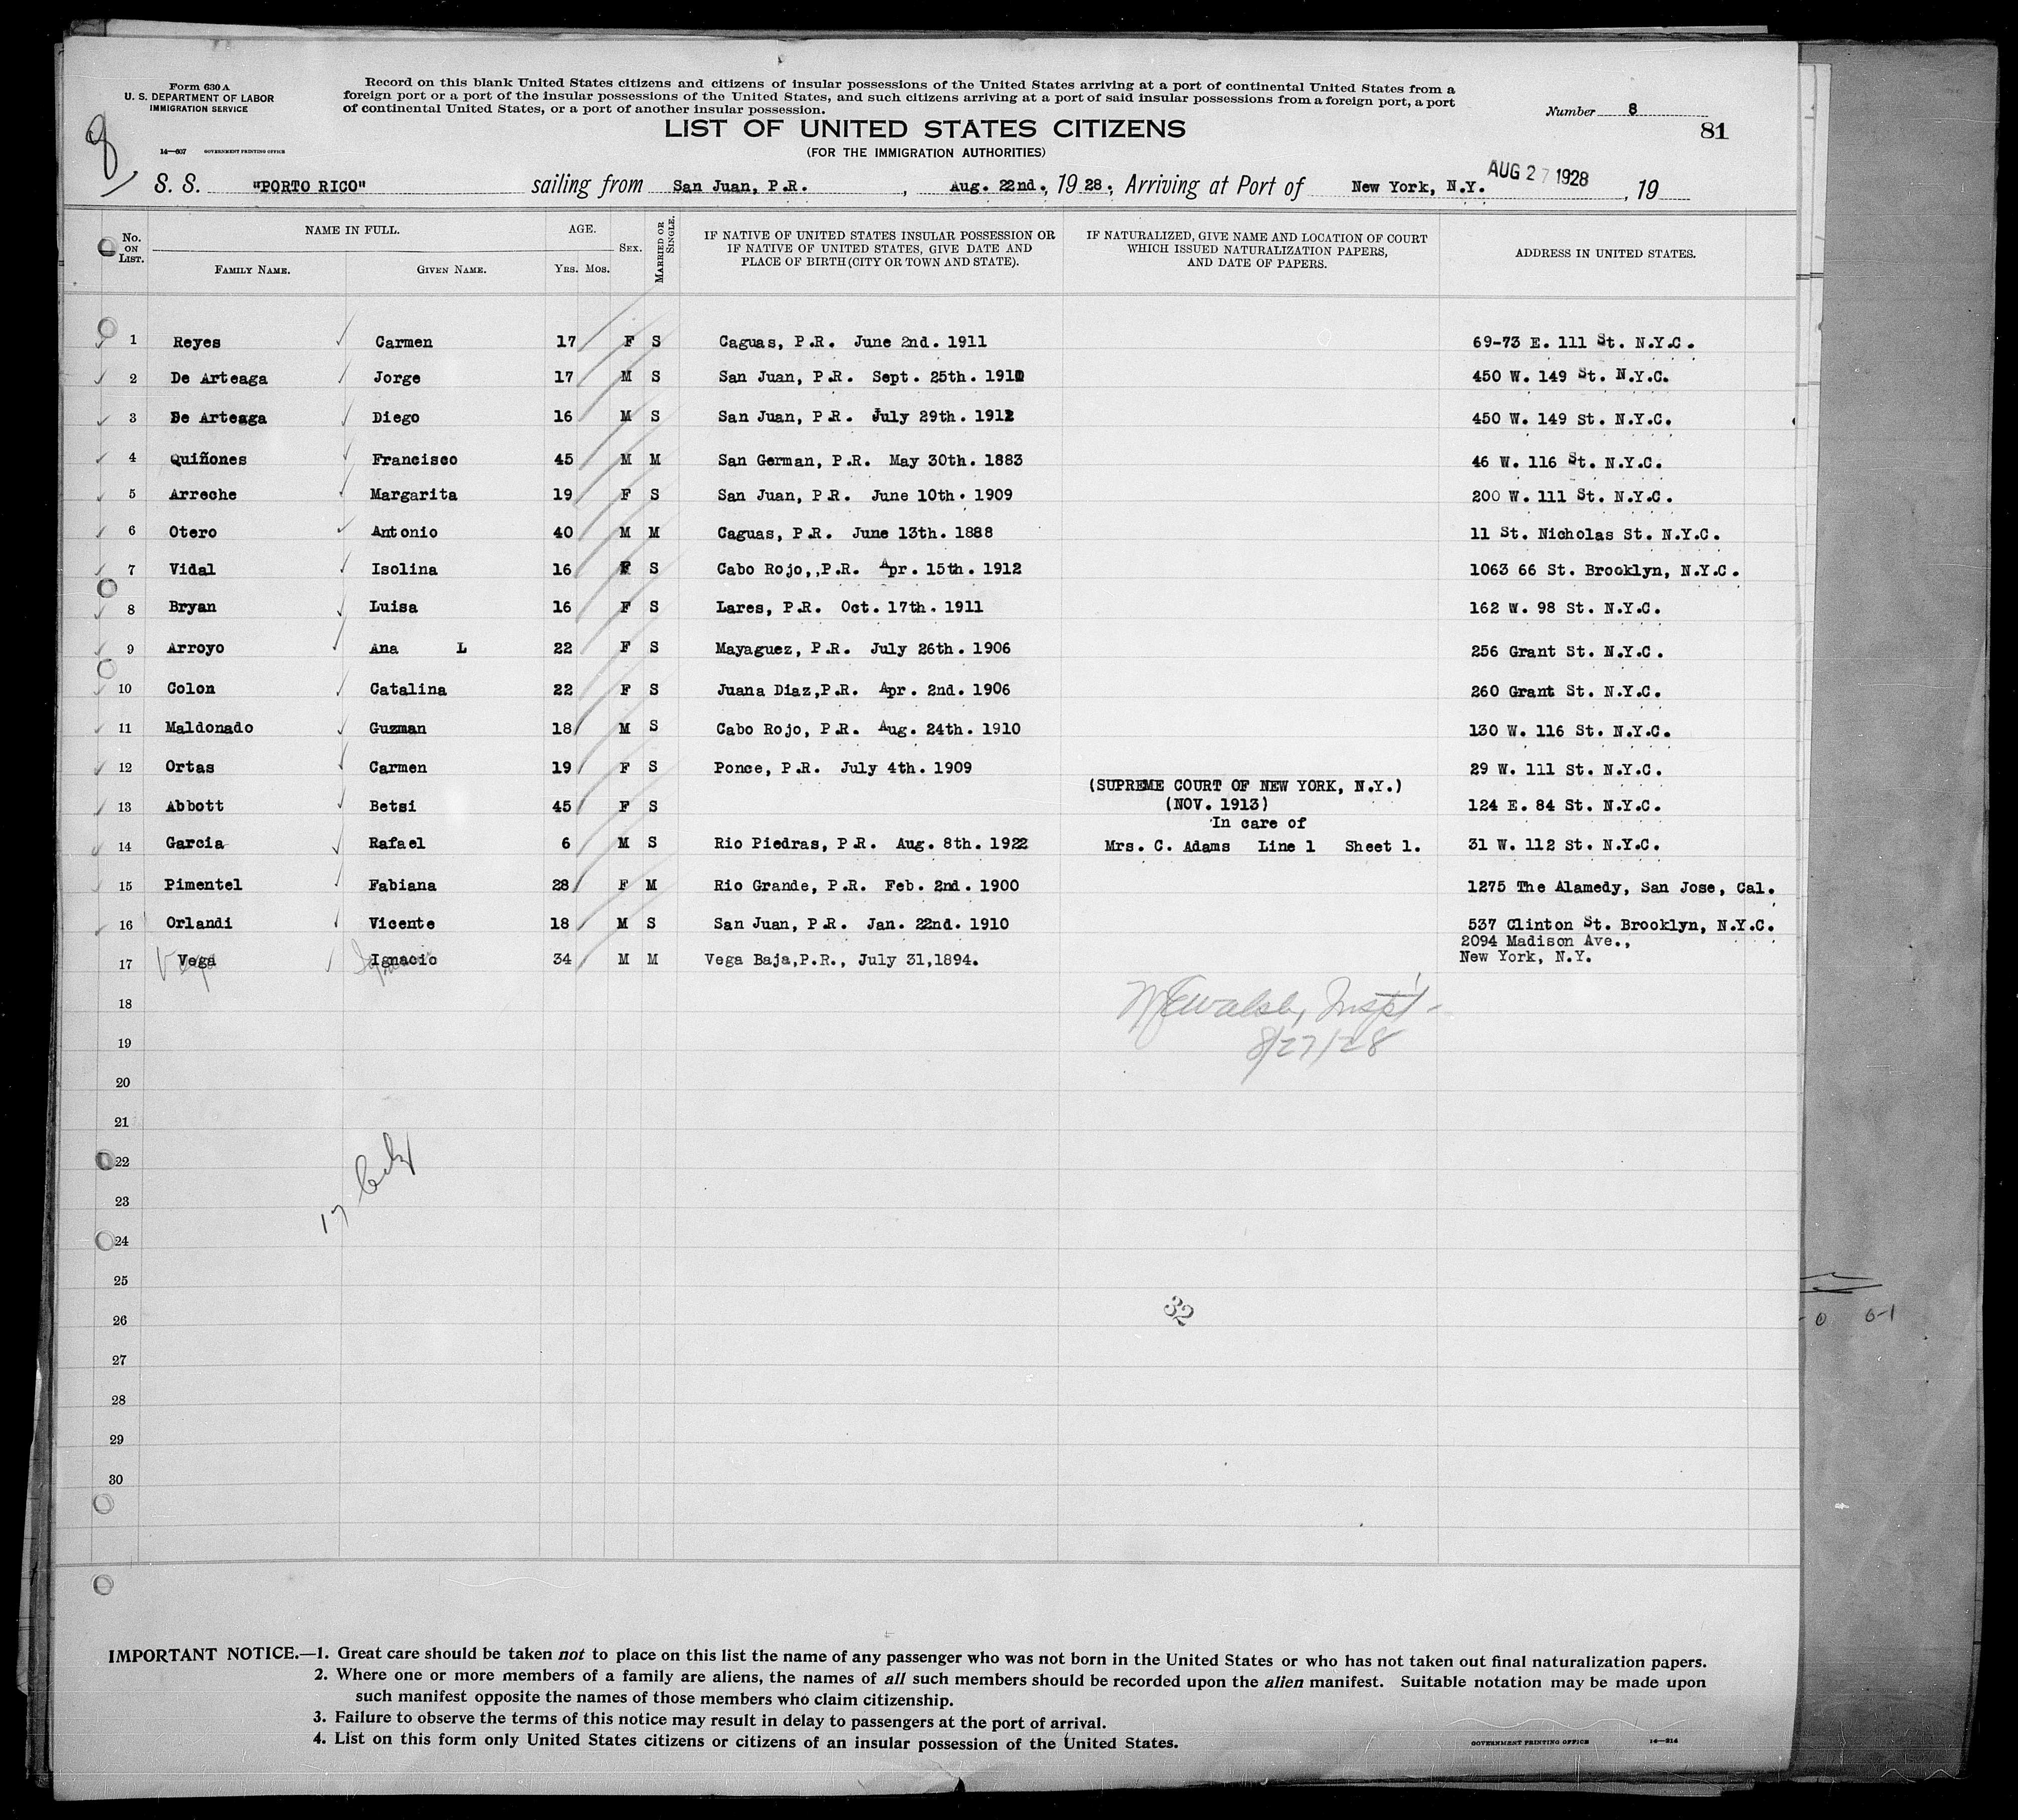 Form 630 A
U. S. DEPARTMENT OF LABOR
IMMIGRATION SERVICE
14—607 GOVERNMENT PRINTING OFFICE
8
Record on this blank United States citizens and citizens of insular possessions of the United States arriving at a port of continental United States from a
foreign port or a port of the insular possessions of the United States, and such citizens arriving at a port of said insular possessions from a foreign port, a port
of continental United States, or a port of another insular possession.
Number 8
81
LIST OF UNITED STATES CITIZENS
(FOR THE IMMIGRATION AUTHORITIES)
S. S. "PORTO RICO" sailing from San Juan, P.R. , Aug. 22nd., 19 28. Arriving at Port of New York, N.Y. AUG 27 1928 , 19
No. ON LIST. NAME IN FULL. FAMILY NAME. GIVEN NAME. AGE. YRS. MOS. SEX. MARRIED OR SINGLE. IF NATIVE OF UNITED STATES INSULAR POSSESSION OR IF NATIVE OF UNITED STATES, GIVE DATE AND PLACE OF BIRTH (CITY OR TOWN AND STATE). IF NATURALIZED, GIVE NAME AND LOCATION OF COURT WHICH ISSUED NATURALIZATION PAPERS, AND DATE OF PAPERS. ADDRESS IN UNITED STATES.
1 Reyes Carmen 17 F S Caguas, P.R. June 2nd. 1911 69-73 E. 111 St. N.Y.C.
2 De Arteaga Jorge 17 M S San Juan, P.R. Sept. 25th. 1910 450 W. 149 St. N.Y.C.
3 De Arteaga Diego 16 M S San Juan, P.R. July 29th. 1912 450 W. 149 St. N.Y.C.
4 Quiñones Francisco 45 M M San German, P.R. May 30th. 1883 46 W. 116 St. N.Y.C.
5 Arreche Margarita 19 F S San Juan, P.R. June 10th. 1909 200 W. 111 St. N.Y.C.
6 Otero Antonio 40 M M Caguas, P.R. June 13th. 1888 11 St. Nicholas St. N.Y.C.
7 Vidal Isolina 16 F S Cabo Rojo,,P.R. Apr. 15th. 1912 1063 66 St. Brooklyn, N.Y.C.
8 Bryan Luisa 16 F S Lares, P.R. Oct. 17th. 1911 162 W. 98 St. N.Y.C.
9 Arroyo Ana L 22 F S Mayaguez, P.R. July 26th. 1906 256 Grant St. N.Y.C.
10 Colon Catalina 22 F S Juana Diaz,P.R. Apr. 2nd. 1906 260 Grant St. N.Y.C.
11 Maldonado Guzman 18 M S Cabo Rojo, P.R. Aug. 24th. 1910 130 W. 116 St. N.Y.C.
12 Ortas Carmen 19 F S Ponce, P.R. July 4th. 1909 29 W. 111 St. N.Y.C.
(SUPREME COURT OF NEW YORK, N.Y.)
13 Abbott Betsi 45 F S (NOV. 1913) 124 E. 84 St. N.Y.C.
In care of
14 Garcia Rafael 6 M S Rio Piedras, P.R. Aug. 8th. 1922 Mrs. C. Adams Line 1 Sheet 1. 31 W. 112 St. N.Y.C.
15 Pimentel Fabiana 28 F M Rio Grande, P.R. Feb. 2nd. 1900 1275 The Alamedy, San Jose, Cal.
16 Orlandi Vicente 18 M S San Juan, P.R. Jan. 22nd. 1910 537 Clinton St. Brooklyn, N.Y.C.
2094 Madison Ave.,
17 Vega Ignacio 34 M M Vega Baja,P.R., July 31,1894. New York, N.Y.
18
19
8/27/28
20
21
22
23
17
24
25
26
32
27
28
29
30
IMPORTANT NOTICE.—1. Great care should be taken not to place on this list the name of any passenger who was not born in the United States or who has not taken out final naturalization papers.
2. Where one or more members of a family are aliens, the names of all such members should be recorded upon the alien manifest. Suitable notation may be made upon
such manifest opposite the names of those members who claim citizenship.
3. Failure to observe the terms of this notice may result in delay to passengers at the port of arrival.
4. List on this form only United States citizens or citizens of an insular possession of the United States.
GOVERNMENT PRINTING OFFICE 14—214